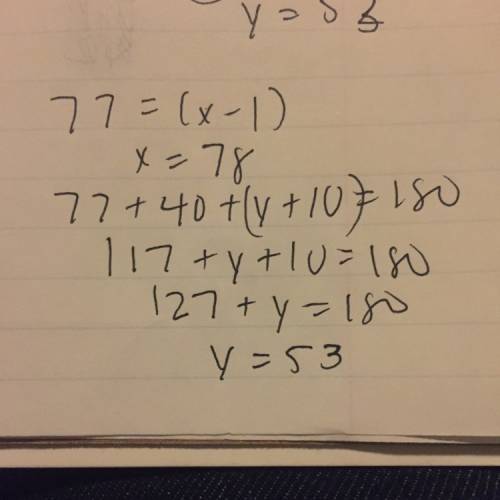 y = 53
77 = (x-1)
x = 78
77 + 40 + (y + 10) = 180
117 + y + 10 = 180
127 + y = 180
y = 53